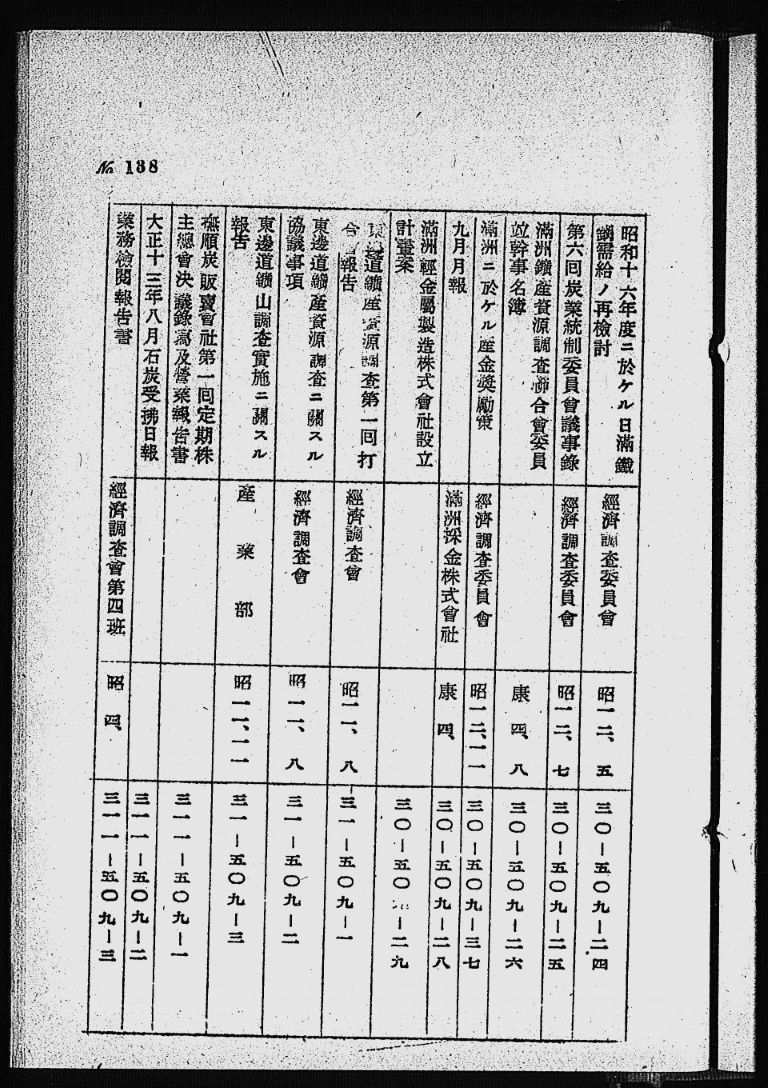 No 138
昭和十六年度ニ於ケル日滿鐵
鋼需給ノ再檢討
經濟調査委員會
昭一二、五
三〇―五〇九―二四
第六回炭業統制委員會議事錄
經濟調査委員會
昭一二、七
三〇―五〇九―二五
滿洲鑛産資源調査聯合會委員
竝幹事名簿
康四、八
三〇―五〇九―二六
滿洲ニ於ケル産金奬勵策
經濟調査委員會
昭一二、一一
三〇―五〇九―三七
九月月報
滿洲採金株式會社
康四、
三〇―五〇九―二八
滿洲輕金屬製造株式會社設立
計畫案
三〇―五〇―二九
道鑛産資源調査第一回打
合報告
經濟調査會
昭一一、八
三一―五〇九―一
東邊道鑛産資源調査ニ關スル
協議事項
經濟調査會
昭一一、八
三一―五〇九―二
東邊道鑛山調査實施ニ關スル
報告
産業部
昭一一、一一
三一―五〇九―三
撫順炭販賣會社第一回定期株
主總會決議錄寫及營業報告書
三一一―五〇九―一
大正十三年八月石炭受拂日報
三一一―五〇九―二
業務檢閲報告書
經濟調査會第四班
昭四、
三一一―五〇九―三